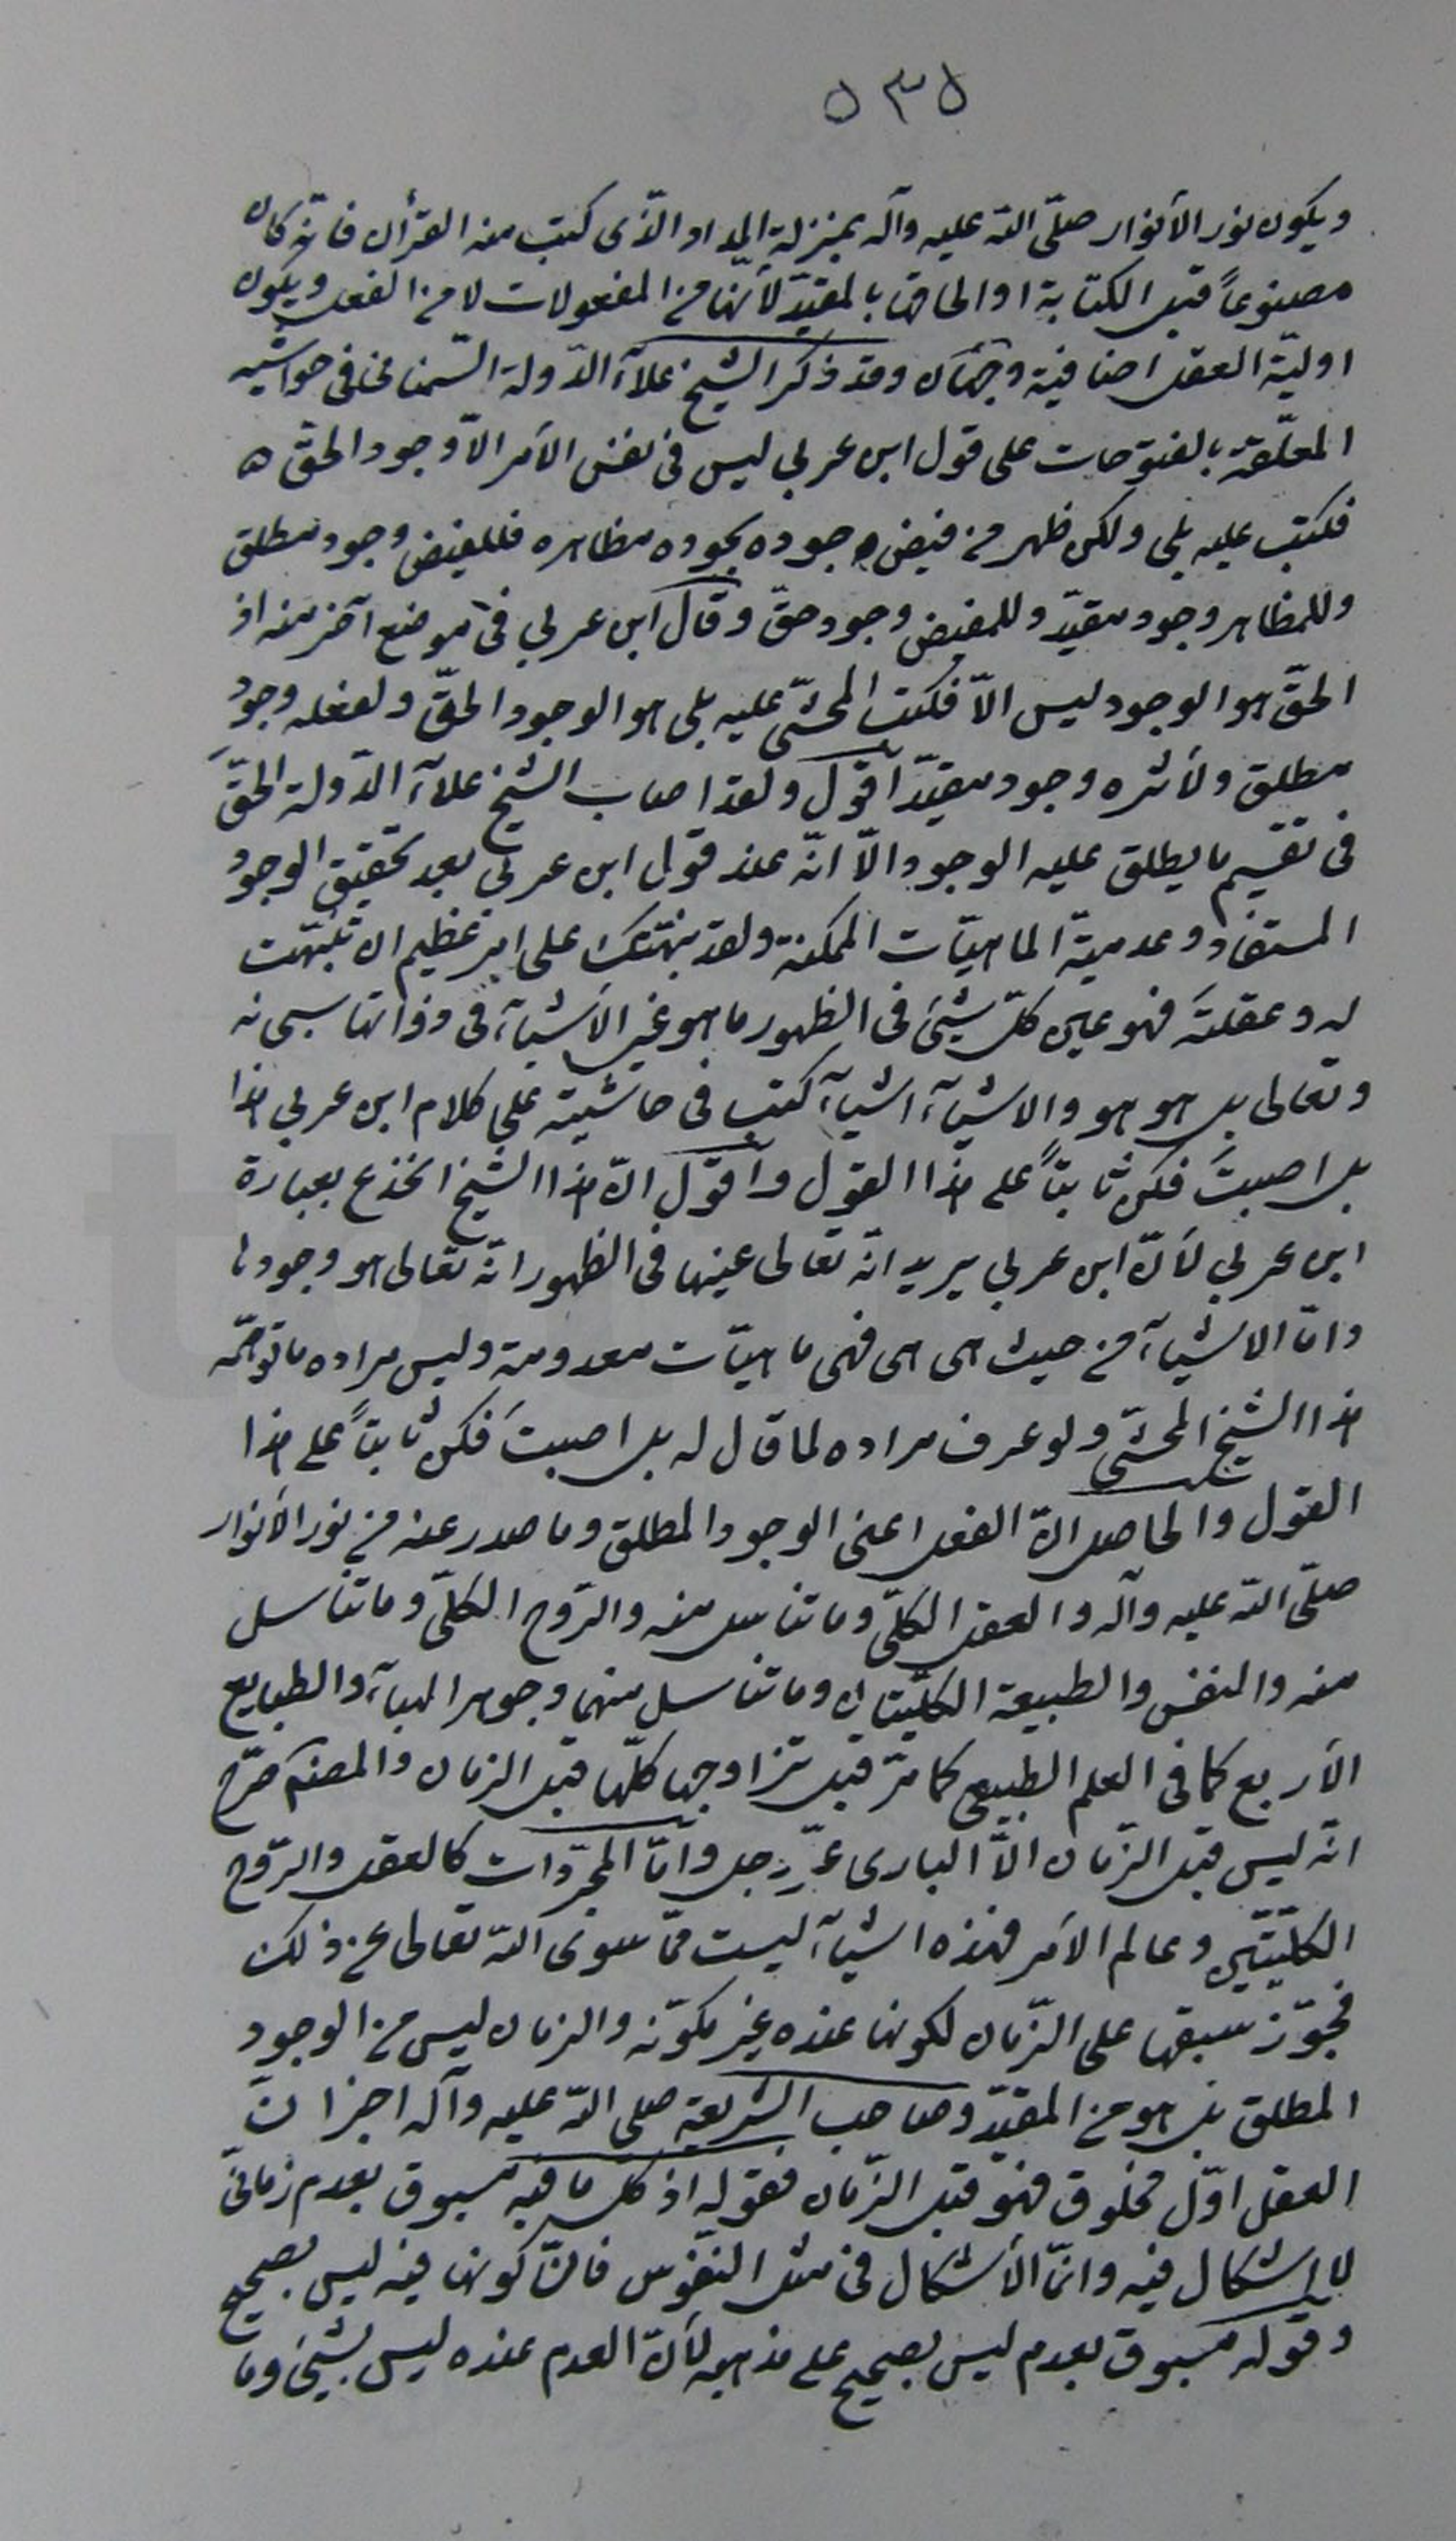 ٥٣٥
ويكون نور الأنوار صلّى اللّه عليه وآله بمنزلة المداد الّذى كتب منه القرأن فانّه كان
مصنوعاً قبل الكتابة او الحاقها بالمقيّد لأنّها من المفعولات لا من الفعل ويكون
اوليّة العقل اضافية وجهان وقد ذكر الشيخ علآء الدّولة السّمنانى فى حواشيه
المعلّقة بالفتوحات على قول ابن عربي ليس فى نفس الأمر الاّ وجود الحقّ ه
فكتب عليه بلى ولكن ظهر من فيض وجوده بجوده مظاهره فللفيض وجود مطلق
وللمظاهر وجود مقيّد وللمفيض وجود حقّ وقال ابن عربي فى موضع آخر منه اذ
الحقّ هو الوجود ليس الاّ فكتب المحشّى عليه بلى هو الوجود الحقّ ولفعله وجود
مطلق ولأثره وجود مقيّد اقول ولقد اصاب الشيخ علآء الدّولة الحقّ
فى تقسيم ما يطلق عليه الوجود الاّ انّه عند قول ابن عربى بعد تحقيق الوجود
المستفاد وعدميّة الماهيّات الممكنة ولقد نبّهتك على امر عظيم ان تنبّهت
له وعقلتَه فهو عين كلّ شيئ فى الظهور ما هو عين الأشيآء فى ذواتها سبحانه
وتعالى بل هو هو والاشيآء اشيآء كتب فى حاشيته على كلام ابن عربي هذا
بل اصبتَ فكن ثابتاً على هذا القول واقول انّ هذا الشيخ انخدع بعبارة
ابن عربي لأنّ ابن عربي يريد انّه تعالى عينها فى الظهور انّه تعالى هو وجودها
وامّا الاشيآء من حيث هى هى فهى ماهيّات معدومة وليس مراده ما توهّمه
هذا الشيخ المحشّى ولو عرف مراده لما قال له بل اصبتَ فكن ثابتاً على هذا
القول والحاصل انّ الفعل اعنى الوجود المطلق وما صدر عنه من نور الأنوار
صلّى اللّه عليه وآله والعقل الكلّى وما تناسل منه والرّوح الكلّى وما تناسل
منه والنفس والطبيعة الكلّيتان وما تناسل منهما وجوهر الهبآء والطبايع
الأربع كما فى العلم الطبيعى كما مرّ قبل تزاوجها كلّها قبل الزمان والمصنّف صرّح
انّه ليس قبل الزّمان الاّ البارى عزّ وجل وامّا المجرّدات كالعقل والرّوح
الكلّيتين وعالم الأمر فهذه اشيآء ليست ممّا سوى اللّه تعالى عن ذلك
فجوّز سبقها على الزّمان لكونها عنده غير مكوّنه والزمان ليس من الوجود
المطلق بل هو من المقيّد وصاحب الشريعة صلى اللّه عليه وآله اخبر انّ
العقل اوّل مخلوق فهو قبل الزّمان فقوله اذ كل ما فيه مسبوق بعدم زمانىّ
لا اشكال فيه وانّما الأشكال فى مثل النفوس فانّ كونها فيه ليس بصحيح
وقوله مسبوق بعدم ليس بصحيح على مذهبه لأنّ العدم عنده ليس بشيئ وما